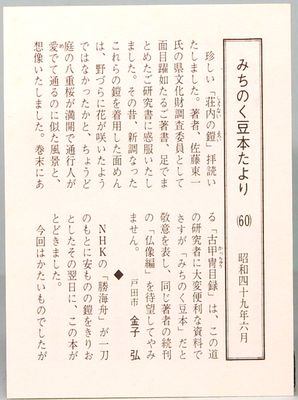 みちのく豆本たより
(60)
昭和四十九年六月
珍しい「荘内の鎧」拝読い
たしました。著者、佐藤東一
氏の県文化財調査委員として
面目躍如たるご著書、足でま
とめたご研究書に感服いたし
ました。その昔、新調なった
これらの鎧を着用した面めん
は、野づらに花が咲いたよう
ではなかったかと、ちょうど
庭の八重桜が満開で通行人が
愛でて通るのに似た風景と、
想像いたしました。巻末にあ
る「古甲冑目録」は、この道
の研究者に大変便利な資料で
さすが「みちのく豆本」だと
敬意を表し、同じ著者の続刊
の「仏像編」を待望してやみ
ません。
戸田市 金子 弘
◆
NHKの「勝海舟」が一刀
のもとに安ものの鎧をきりお
としたその翌日に、この本が
とどきました。
今回はかたいものでしたが